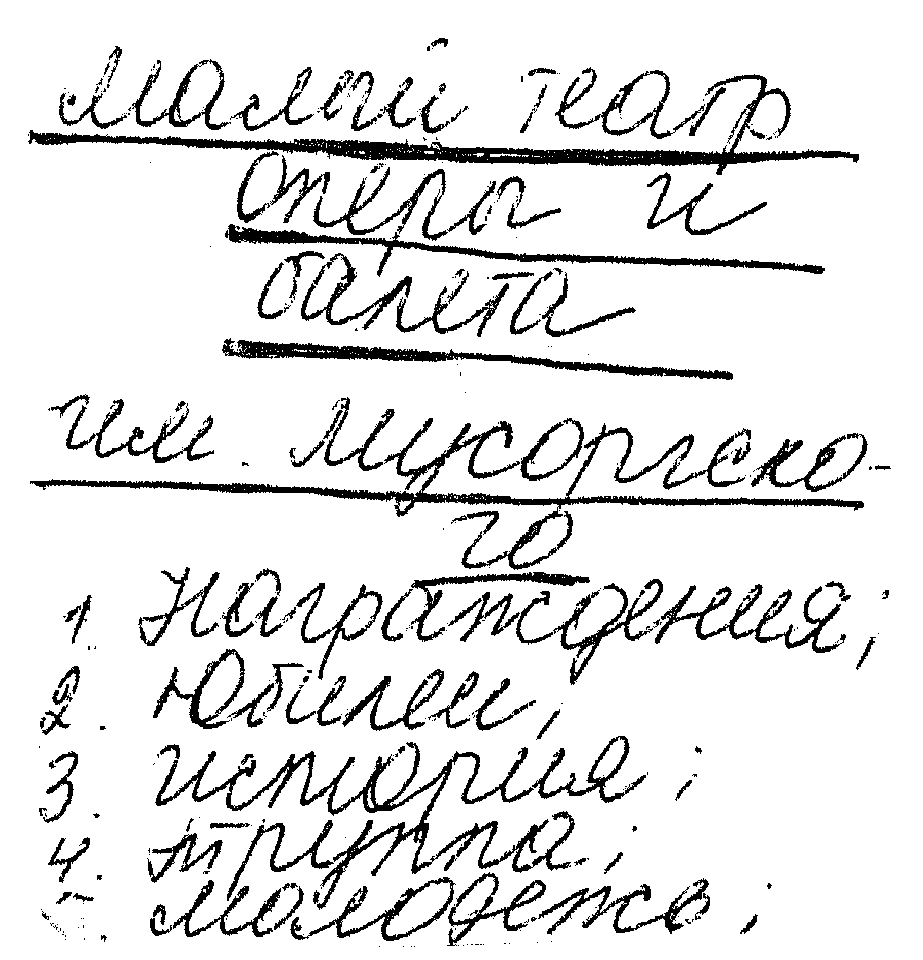 Малый театр
оперы и
балета
им. Мусоргско-
го
1. Награждения;
2. Юбилеи;
3. история;
4. труппа;
5. молодежь;